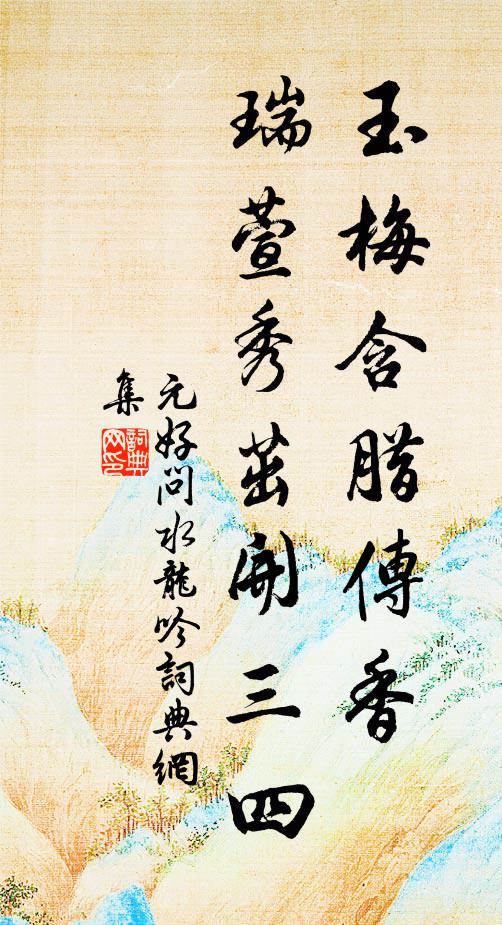 玉梅含腊傳香
瑞萱秀茁開三四
元好问水龍吟詞典網
集
詞典
网印